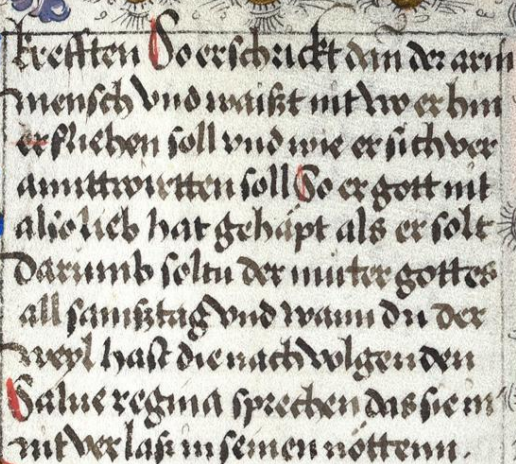 krefften So erschrickt dan̄ der arm
mensch vnd waißt nit wo er hin
erfliehen soll vnd wie er sich ver
anttwurtten soll So er gott nit
also lieb hat gehapt als er solt
Darumb soltu der muter gottes
all samßtag vnd wann du der
weyl hast die nach volgenden
Salue regina sprechen das sie in
nit verlaß in seinen nöttenn.